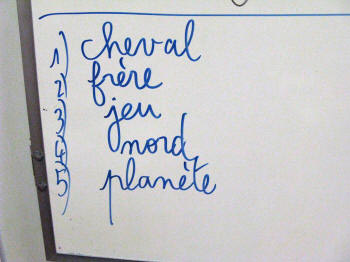 1) cheval
2) frère
3) jeu
4) nord
5) planète